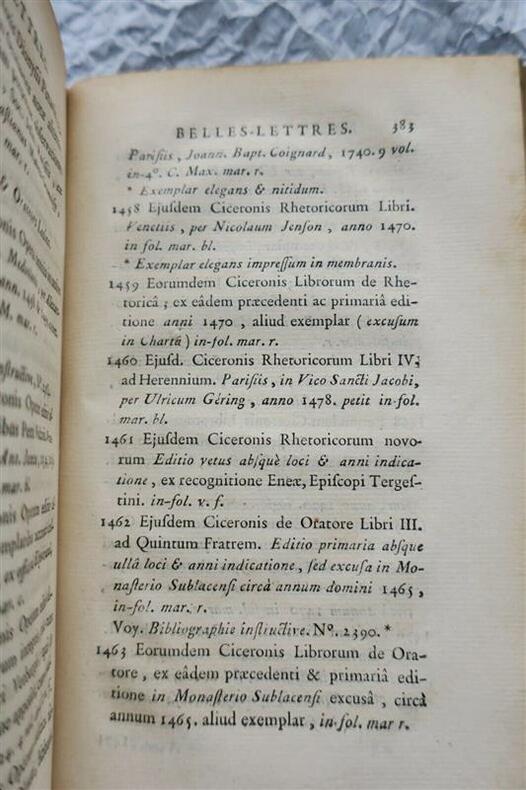 BELLES-LETTRES. 383
Parisiis, Joann. Bapt. Coignard, 1740. 9 vol.
in-4°. C. Max. mar. r.
* Exemplar elegans & nitidum.
1458 Ejusdem Ciceronis Rhetoricorum Libri.
Venetiis, per Nicolaum Jenson, anno 1470.
in fol. mar. bl.
* Exemplar elegans impressum in membranis.
1459 Eorumdem Ciceronis Librorum de Rhe-
toricâ; ex eâdem præcedenti ac primariâ edi-
tione anni 1470, aliud exemplar (excusum
in Chartâ) in-fol. mar. r.
1460 Ejusd. Ciceronis Rhetoricorum Libri IV;
ad Herennium. Parisiis, in Vico Sancti Jacobi,
per Ulricum Géring, anno 1478. petit in-fol.
mar. bl.
1461 Ejusdem Ciceronis Rhetoricorum novo-
rum Editio vetus absquè loci & anni indica-
tione, ex recognitione Eneæ, Episcopi Terges-
tini. in-fol. v. f.
1462 Ejusdem Ciceronis de Oratore Libri III.
ad Quintum Fratrem. Editio primaria absque
ullâ loci & anni indicatione, sed excusa in Mo-
nasterio Sublacensi circà annum domini 1465,
in-fol. mar. r.
Voy. Bibliographie instructive. N°. 2390. *
1463 Eorumdem Ciceronis Librorum de Ora-
tore, ex eâdem præcedenti & primariâ edi-
tione in Monasterio Sublacensi excusâ, circà
annum 1465. aliud exemplar, in-fol. mar r.